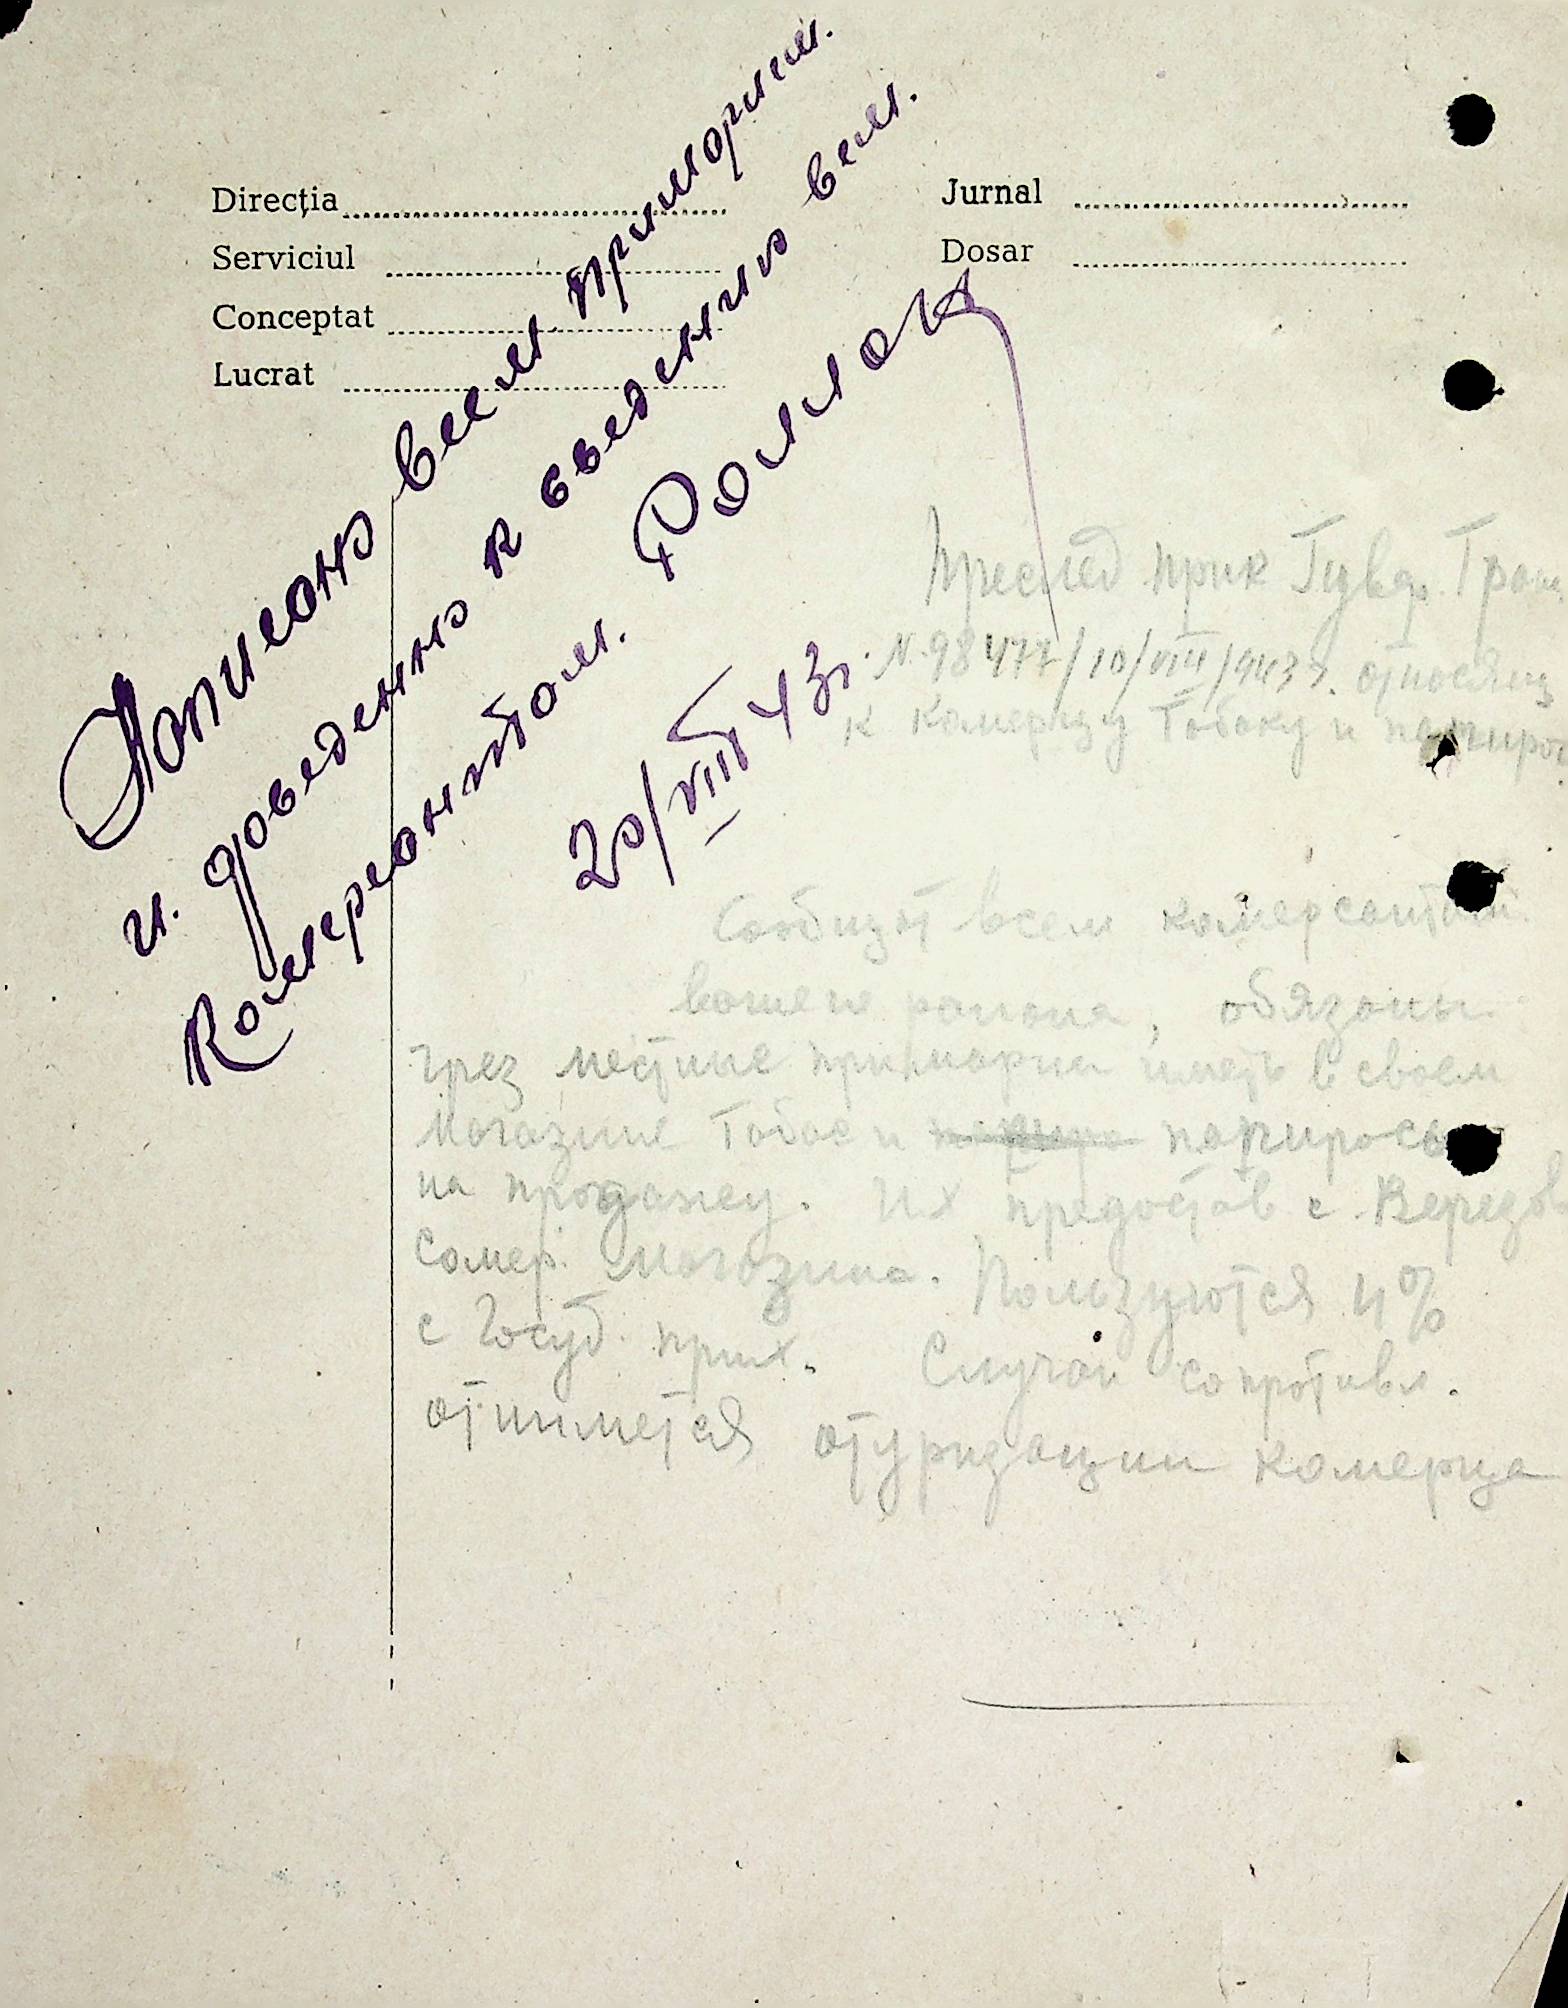 Direcția
Serviciul
Conceptat
Lucrat
Jurnal
Dosar
Написано всем примориям.
и. доведенно к сведению всем.
Комерсонтом.
20/VIII 43г.
прик Губер.
N. 98477/10/VIII/943г. относящ
к комерцу Табаку и папирос
Сообщат всем комерсантам
вашего раиона, обязаны
чрез местные примории иметь в своем
Магазине Табак и папиросы
на продажу. Их предостав с
Комер. магазина. Пользуются 4%
с Госуд. прих. Случаи сопротивл.
отниметься комерца